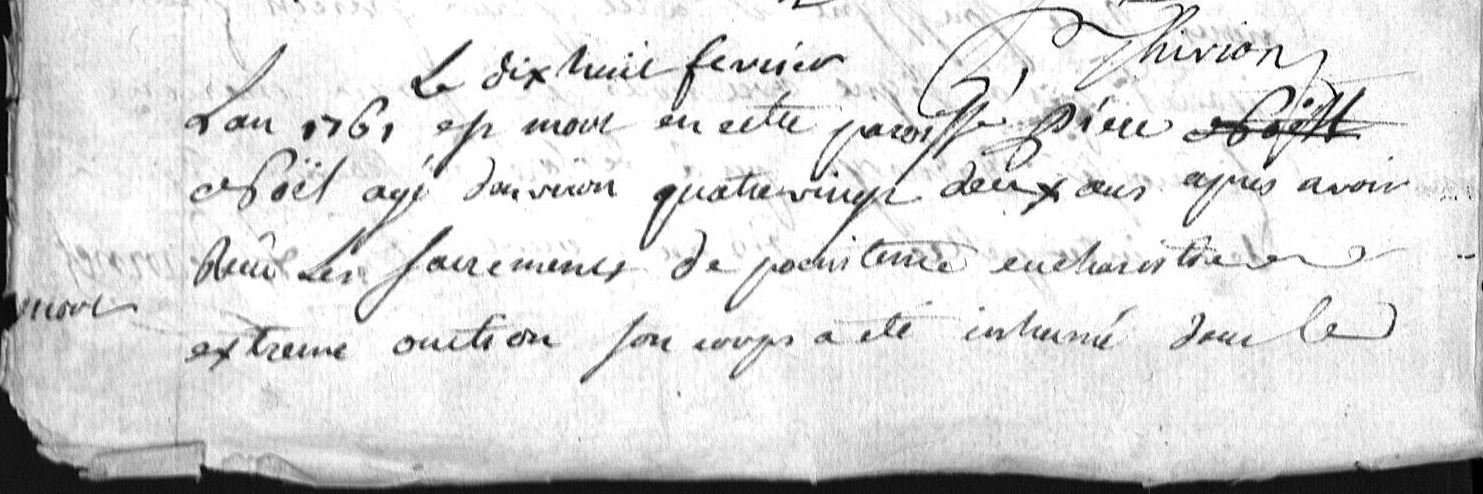 Thirion
Le dix huit fevrier
Lan 1761 est mort en cette paroisse Piere Noël
Noël agé danviron quatrevingt deux ans apres avoir
Recu Les sacrements de penitence eucharistie et
mort
extreme onction son corps a eté inhumé dans le